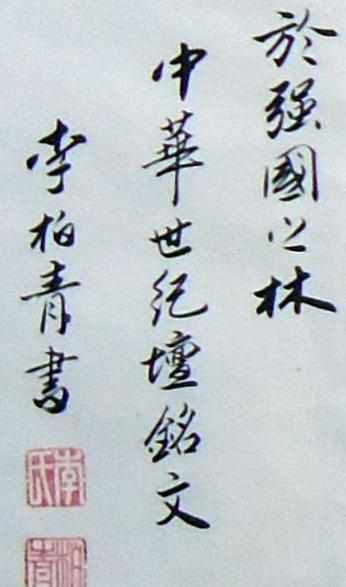 於强國之林
中華世紀壇銘文
李柏青書
李氏
柏青